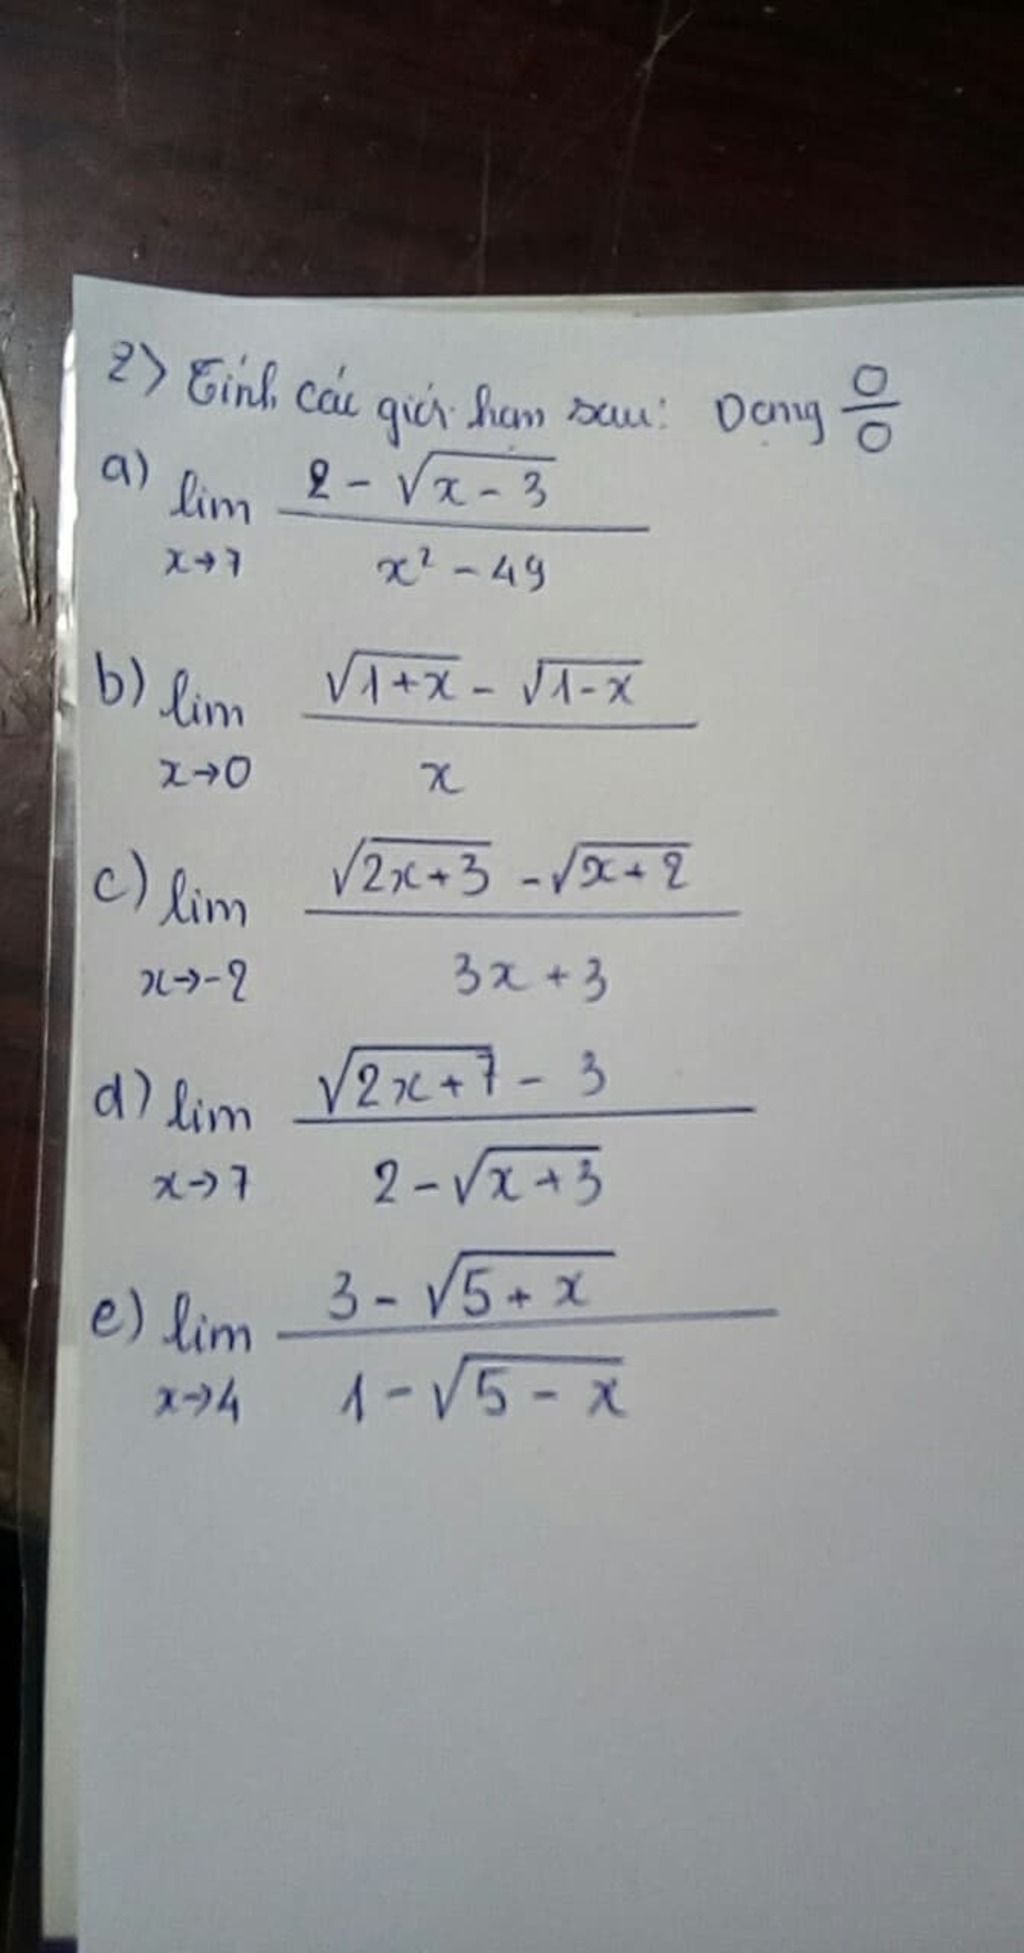 2) Tính các giới hạn sau: Dạng 0/0
a) lim x→7 (2 - √(x - 3)) / (x² - 49)
b) lim x→0 (√(1+x) - √(1-x)) / x
c) lim x→-2 (√(2x+3) - √(x+2)) / (3x + 3)
d) lim x→7 (√(2x+7) - 3) / (2 - √(x+3))
e) lim x→4 (3 - √(5+x)) / (1 - √(5-x))